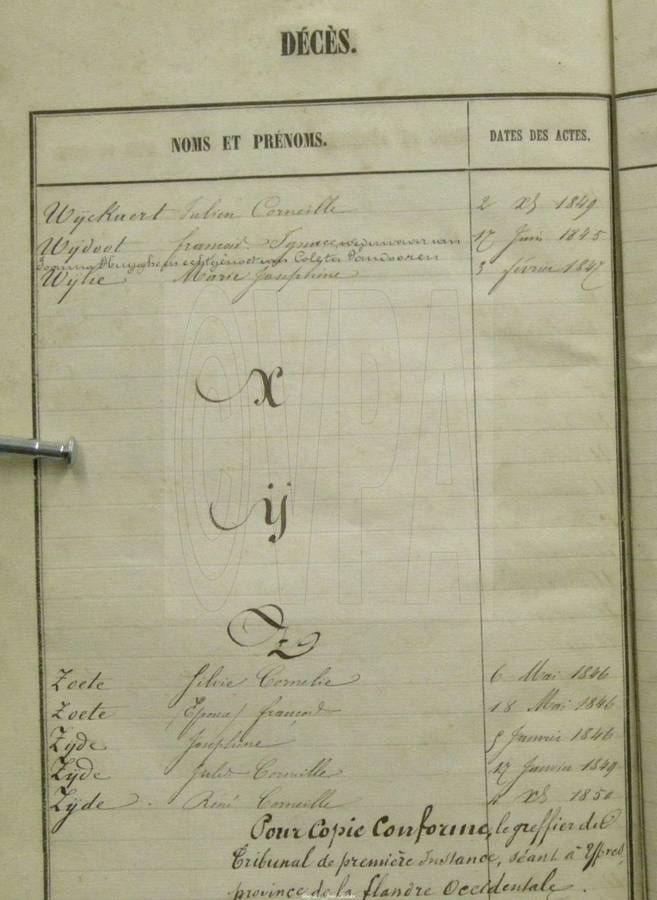 DÉCÈS.
NOMS ET PRÉNOMS. DATES DES ACTES.
Wÿckaert Julien Corneille 2 Xb 1849
Wÿdoot francois Ignace weduwaar van 17 Juin 1845
Joanna Huyghe, en echtgenoot van Coleta Vandooren
Wÿlie Marie Josephine 3 février 1847
X
ÿ
Z
Zoete Silvie Cornelie 6 Mai 1846
Zoete (Epoux) françois 18 Mai 1846
Zÿde Josephine 5 Janvier 1846
Zÿde Jules Corneille 17 Janvier 1849
Zÿde René Corneille Xb 1850
Pour Copie Conforme, le greffier du
Tribunal de première Instance, séant à Ypres,
province de la flandre Occidentale.
©VPA